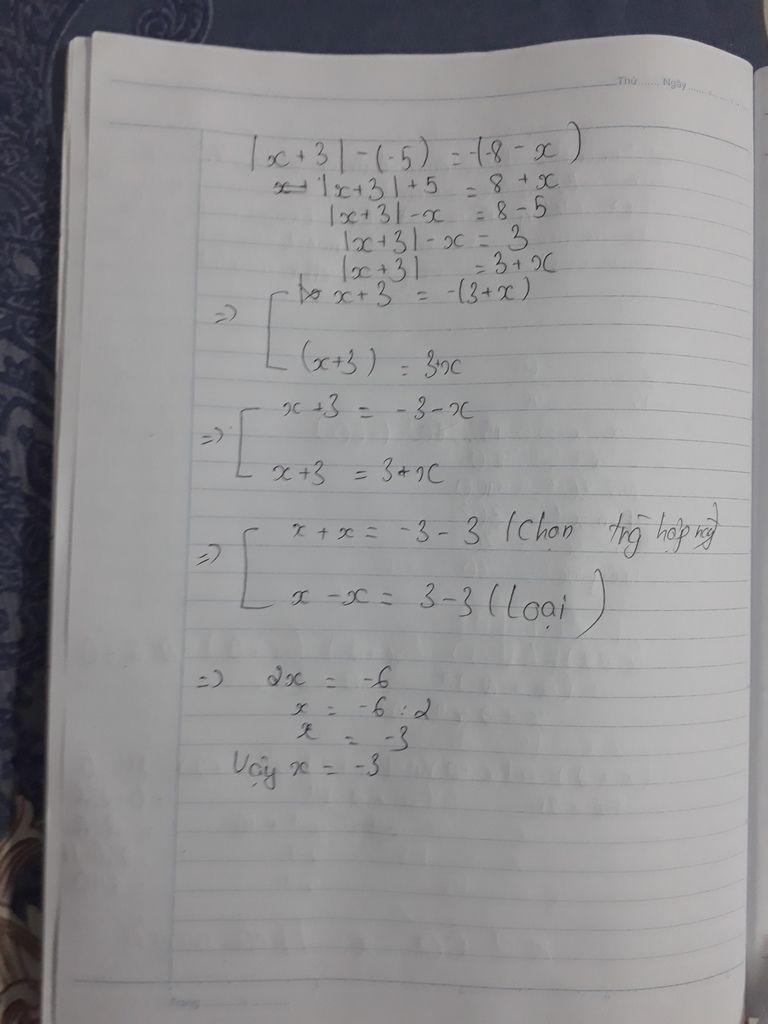 Thứ ...... Ngày ......
|x + 3| - (-5) = -(-8 - x)
|x+3| + 5 = 8 + x
|x+3| - x = 8 - 5
|x+3| - x = 3
|x+3| = 3 + x
=> [ x + 3 = -(3+x)
(x+3) = 3+x
=> [ x + 3 = -3 - x
x + 3 = 3 + x
=> [ x + x = -3 - 3 (Chọn hợp này)
x - x = 3 - 3 (Loại)
=> 2x = -6
x = -6 : 2
x = -3
Vậy x = -3
Trang